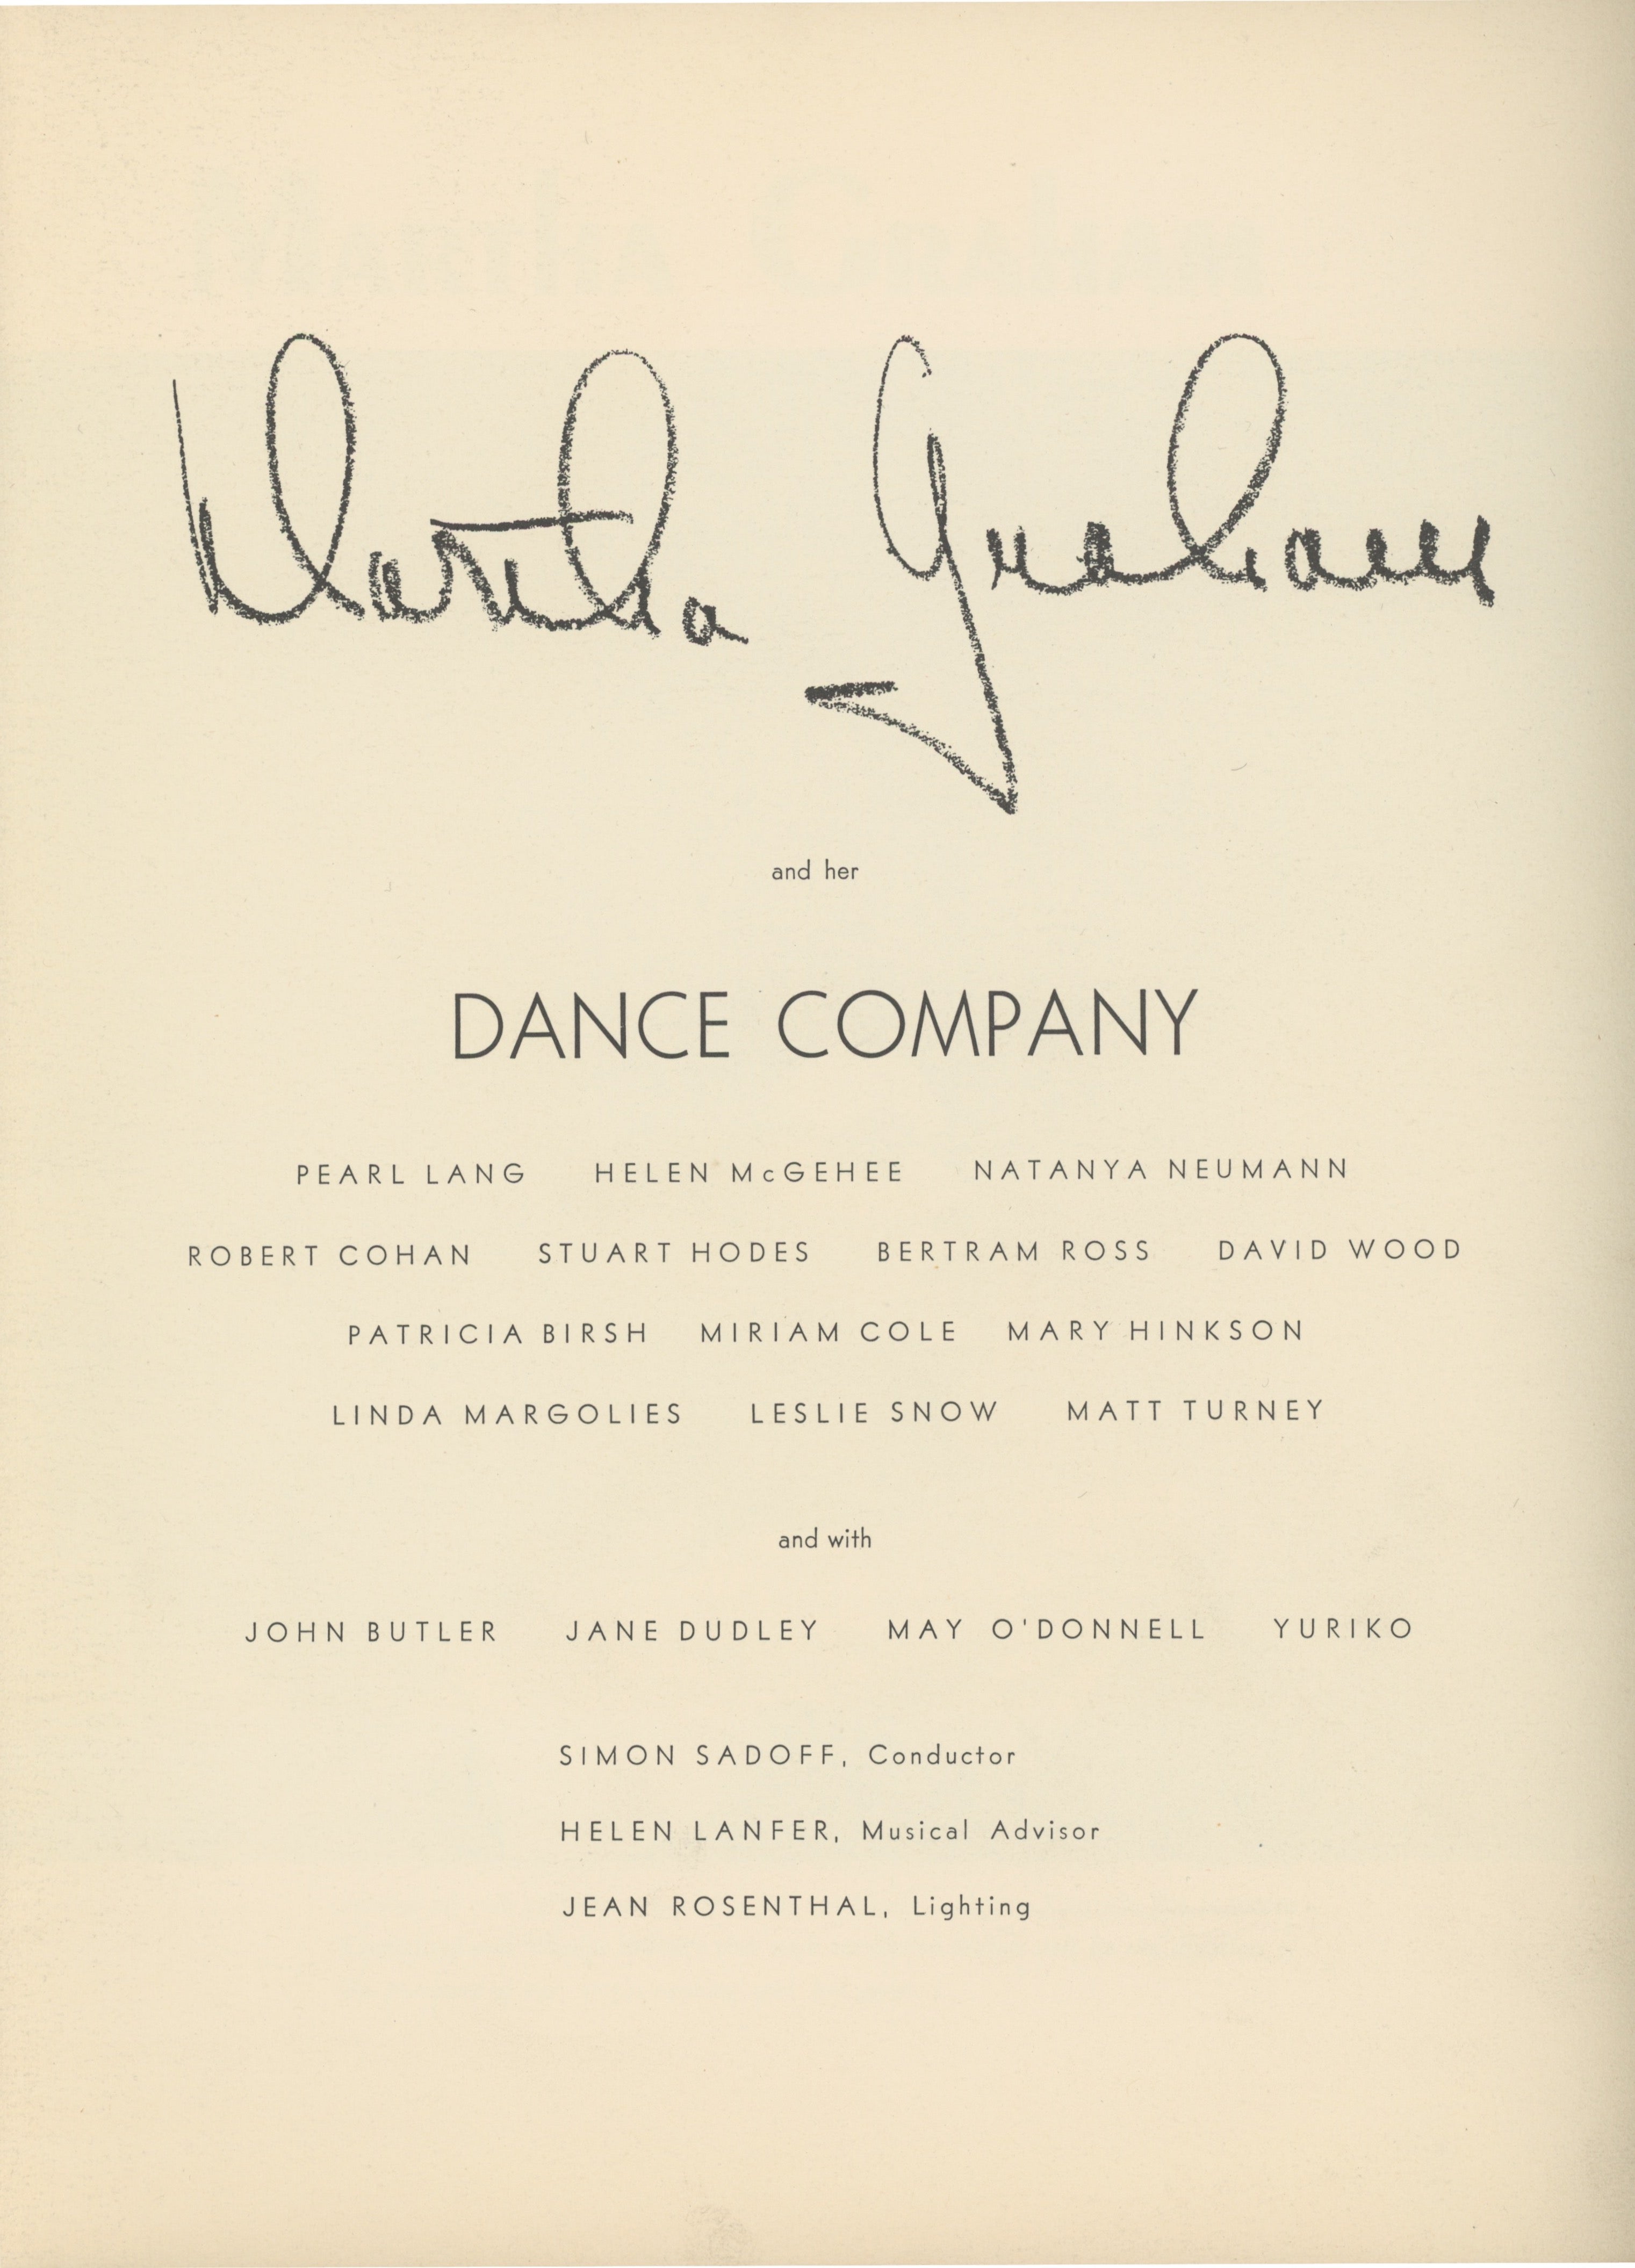 Martha Graham
and her
DANCE COMPANY
PEARL LANG HELEN McGEHEE NATANYA NEUMANN
ROBERT COHAN STUART HODES BERTRAM ROSS DAVID WOOD
PATRICIA BIRSH MIRIAM COLE MARY HINKSON
LINDA MARGOLIES LESLIE SNOW MATT TURNEY
and with
JOHN BUTLER JANE DUDLEY MAY O'DONNELL YURIKO
SIMON SADOFF, Conductor
HELEN LANFER, Musical Advisor
JEAN ROSENTHAL, Lighting